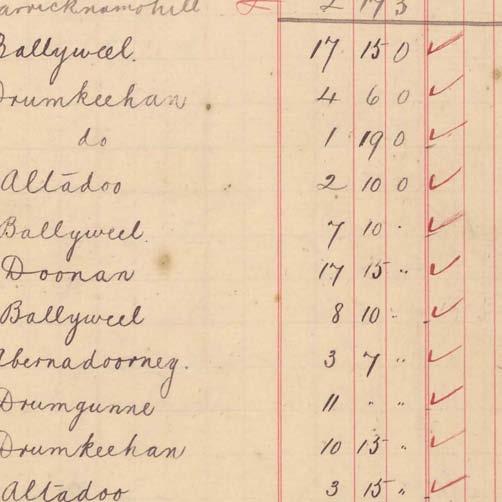 arricknamohill £ 2 17 3
Ballyweel. 17 15 0 ✓
Drumkeehan 4 6 0 ✓
do 1 19 0 ✓
Altadoo 2 10 0 ✓
Ballyweel. 7 10 " ✓
Doonan 17 15 " ✓
Ballyweel 8 10 " ✓
Abernadoorney. 3 7 " ✓
Drumgunne 11 " " ✓
Drumkeehan 10 15 " ✓
Altadoo 3 15 " ✓